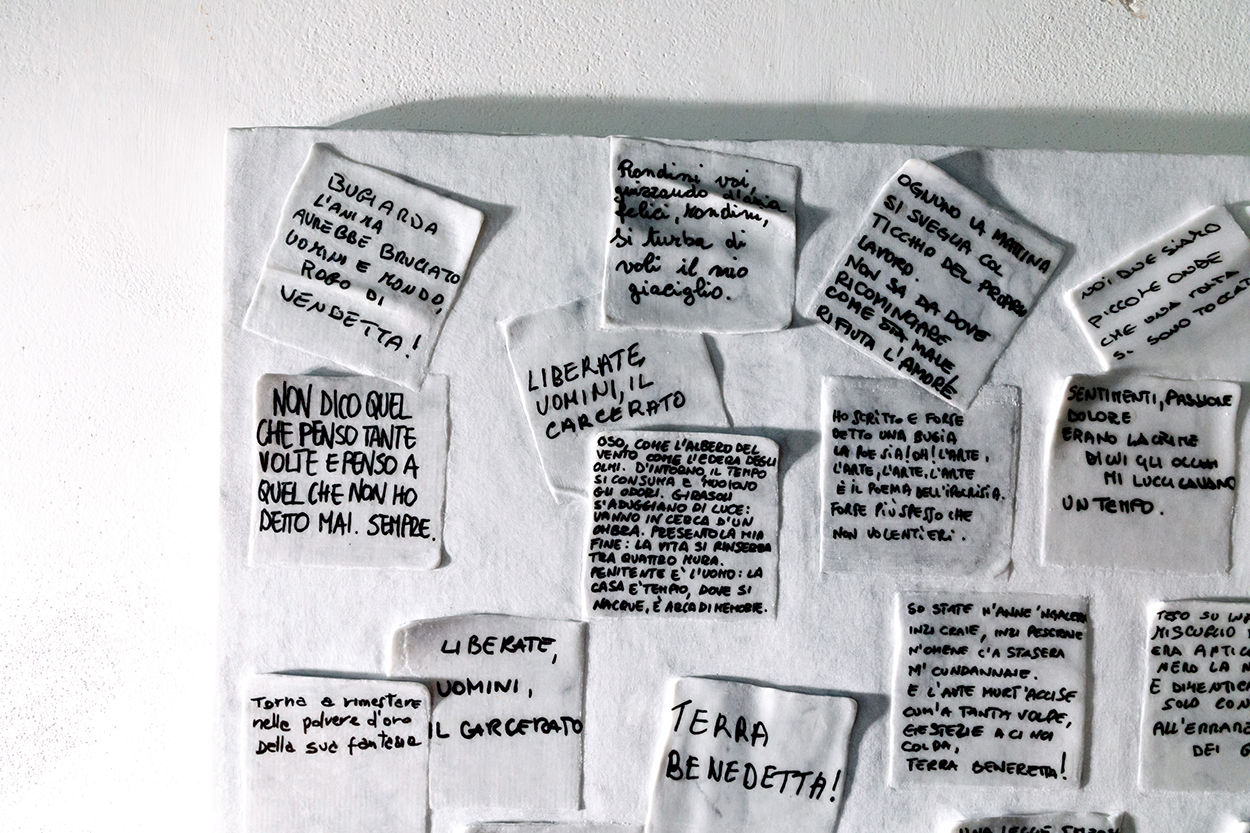 BUGIARDA
L'ANIMA
AVREBBE BRUCIATO
UOMINI E MONDO,
ROGO DI
VENDETTA!
Rondini voi,
guizzando d'aria
felici, rondini,
si turba di
voli il mio
giaciglio.
OGNUNO LA MATTINA
SI SVEGLIA COL
TICCHIO DEL PROPRIO
LAVORO.
NON SA DA DOVE
RICOMINCIARE
COME STA MALE
RIFIUTA L'AMORE
NOI DUE SIAMO
PICCOLE ONDE
CHE UNA VOLTA
SI SONO TOCCATE
LIBERATE
UOMINI, IL
CARCERATO
NON DICO QUEL
CHE PENSO TANTE
VOLTE E PENSO A
QUEL CHE NON HO
DETTO MAI. SEMPRE.
OSO, COME L'ALBERO DEL
VENTO COME L'EDERA DEGLI
OLMI. D'INTORNO IL TEMPO
SI CONSUMA E MUOIONO
GLI ODORI. GIRASOLI
S'ADUGGIANO DI LUCE:
VANNO IN CERCA D'UN
OMBRA. PRESENTO LA MIA
FINE: LA VITA SI RINSERRA
TRA QUATTRO MURA.
PENITENTE E' L'UOMO: LA
CASA E' TEMPIO, DOVE SI
NACQUE, È ARCA DI MEMORIE.
HO SCRITTO E FORSE
DETTO UNA BUGIA
LA POESIA! OH! L'ARTE,
L'ARTE, L'ARTE. L'ARTE
È IL POEMA DELL'IPOCRISIA.
FORSE PIÙ SPESSO CHE
NON VOLENTIERI.
SENTIMENTI, PASSIONE
DOLORE
ERANO LACRIME
DI CUI GLI OCCHI
MI LUCCICAVANO
UN TEMPO.
LIBERATE,
UOMINI,
IL CARCERATO
Torna a rimestare
nelle polvere d'oro
della sua fantasia
TERRA
BENEDETTA!
SO STATE N'ANNE 'NGALERA
INZI CRAIE, INZI PESCRAIE
N'OMENE C'A STASERA
M' CUNDANNAIE.
E L'AUTE MURT'ACCISE
CUM'A TANTA VOLPE,
GIESTEZIE A CI NOI
COLPA,
TERRA BENERETTA!
TESO SU
MISCUGLIO
ERA ANTIC
NERO LA
E DIMENTIC
SOLO CON
ALL'ERRARE
DEI
UNA LEGGE